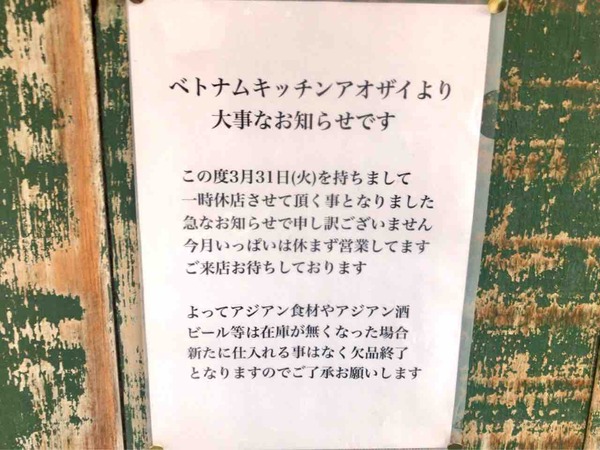 ベトナムキッチンアオザイより
大事なお知らせです
この度3月31日(火)を持ちまして
一時休店させて頂く事となりました
急なお知らせで申し訳ございません
今月いっぱいは休まず営業してます
ご来店お待ちしております
よってアジアン食材やアジアン酒
ビール等は在庫が無くなった場合
新たに仕入れる事はなく欠品終了
となりますのでご了承お願いします